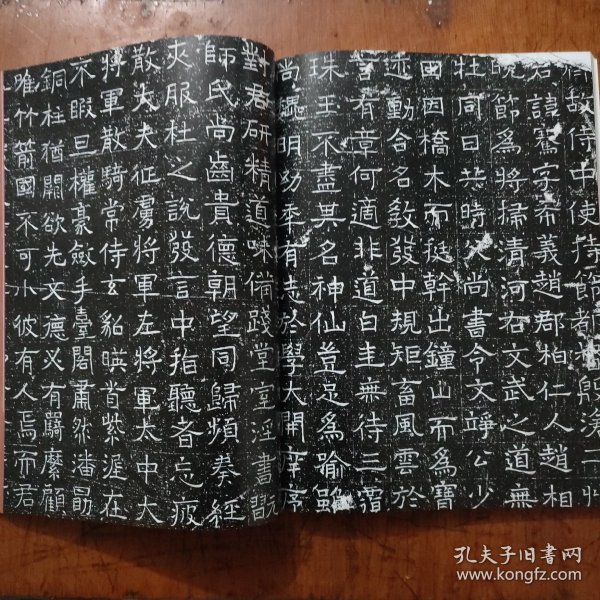 故侍中使持節都
君諱騫字希義趙郡柏仁人趙相
晚節爲將掃清河右文武之道無
杜同日共時父尚書令文靖公少
國因橋木而挺幹出鐘山而爲寶
迹動合名教發中規矩畜風雲於
言有章何適非道白圭無待三
珠玉不盡其名神仙豈足爲喻
尚 明幼季有志於學大開庠序
對君研精道味備踐堂室淫書
師氏尚齒貴德朝望同歸頻奏經
夾服杜之說發言中指聽者忘疲
散大夫征虜將軍左將軍太中大
將軍散騎常侍玄貂暎首紫渥在
不暇且權豪斂手臺閣肅然潘勗
銅柱猶開欲先文德必有羈縻顧
唯竹箭國不可小彼有人焉而君
孔夫子旧書网
www.kongfz.com